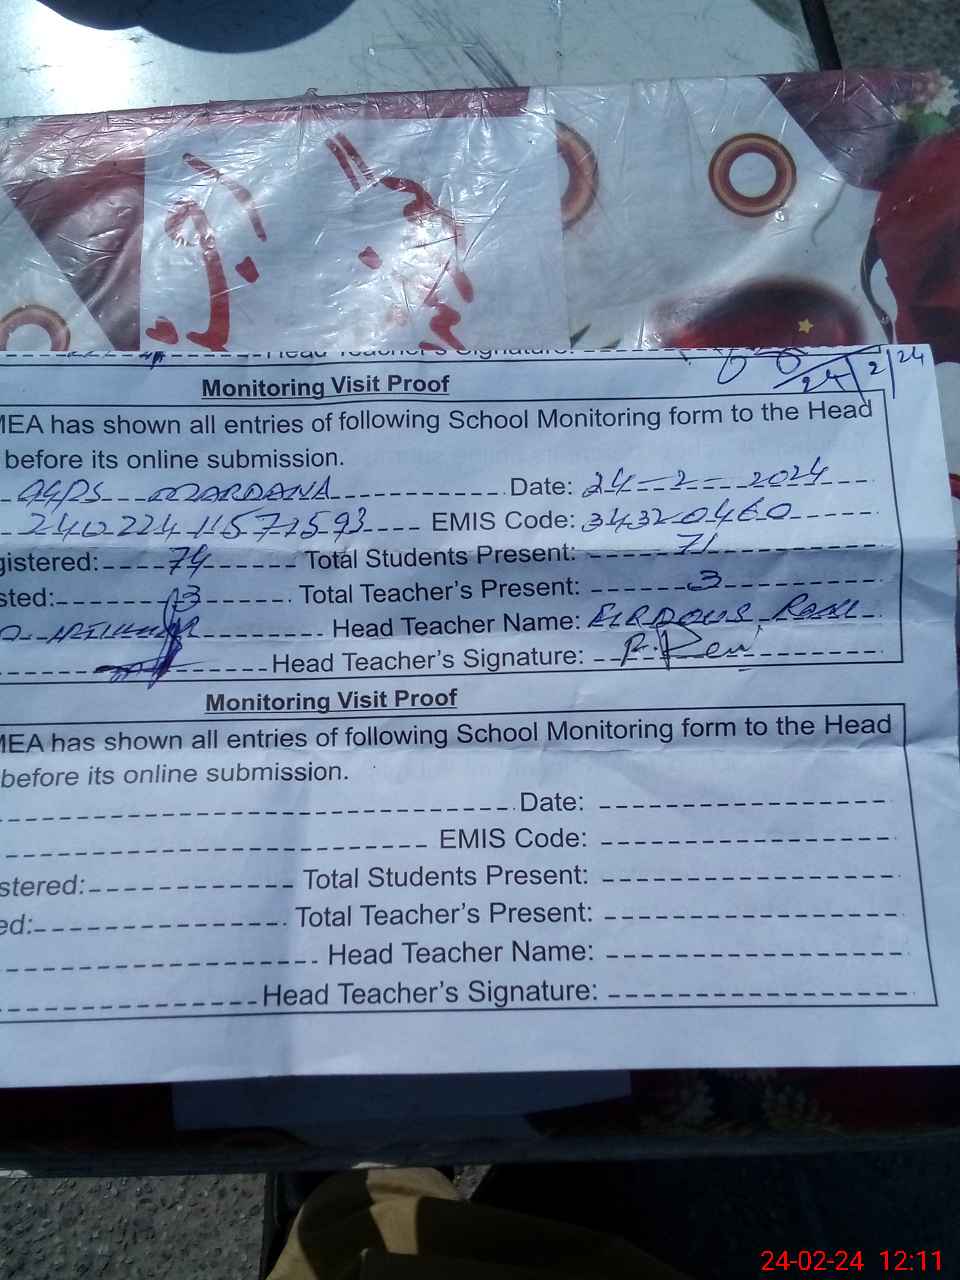 Head Teacher's Signature:
24/2/24
Monitoring Visit Proof
MEA has shown all entries of following School Monitoring form to the Head
before its online submission.
GGPS MARDANA Date: 24-2-2024
24022411571593 EMIS Code: 34320460
gistered: 74 Total Students Present: 71
sted: 3 Total Teacher's Present: 3
Head Teacher Name: FIRDOUS
Head Teacher's Signature:
Monitoring Visit Proof
MEA has shown all entries of following School Monitoring form to the Head
before its online submission.
Date:
EMIS Code:
stered: Total Students Present:
ed: Total Teacher's Present:
Head Teacher Name:
Head Teacher's Signature:
24-02-24 12:11